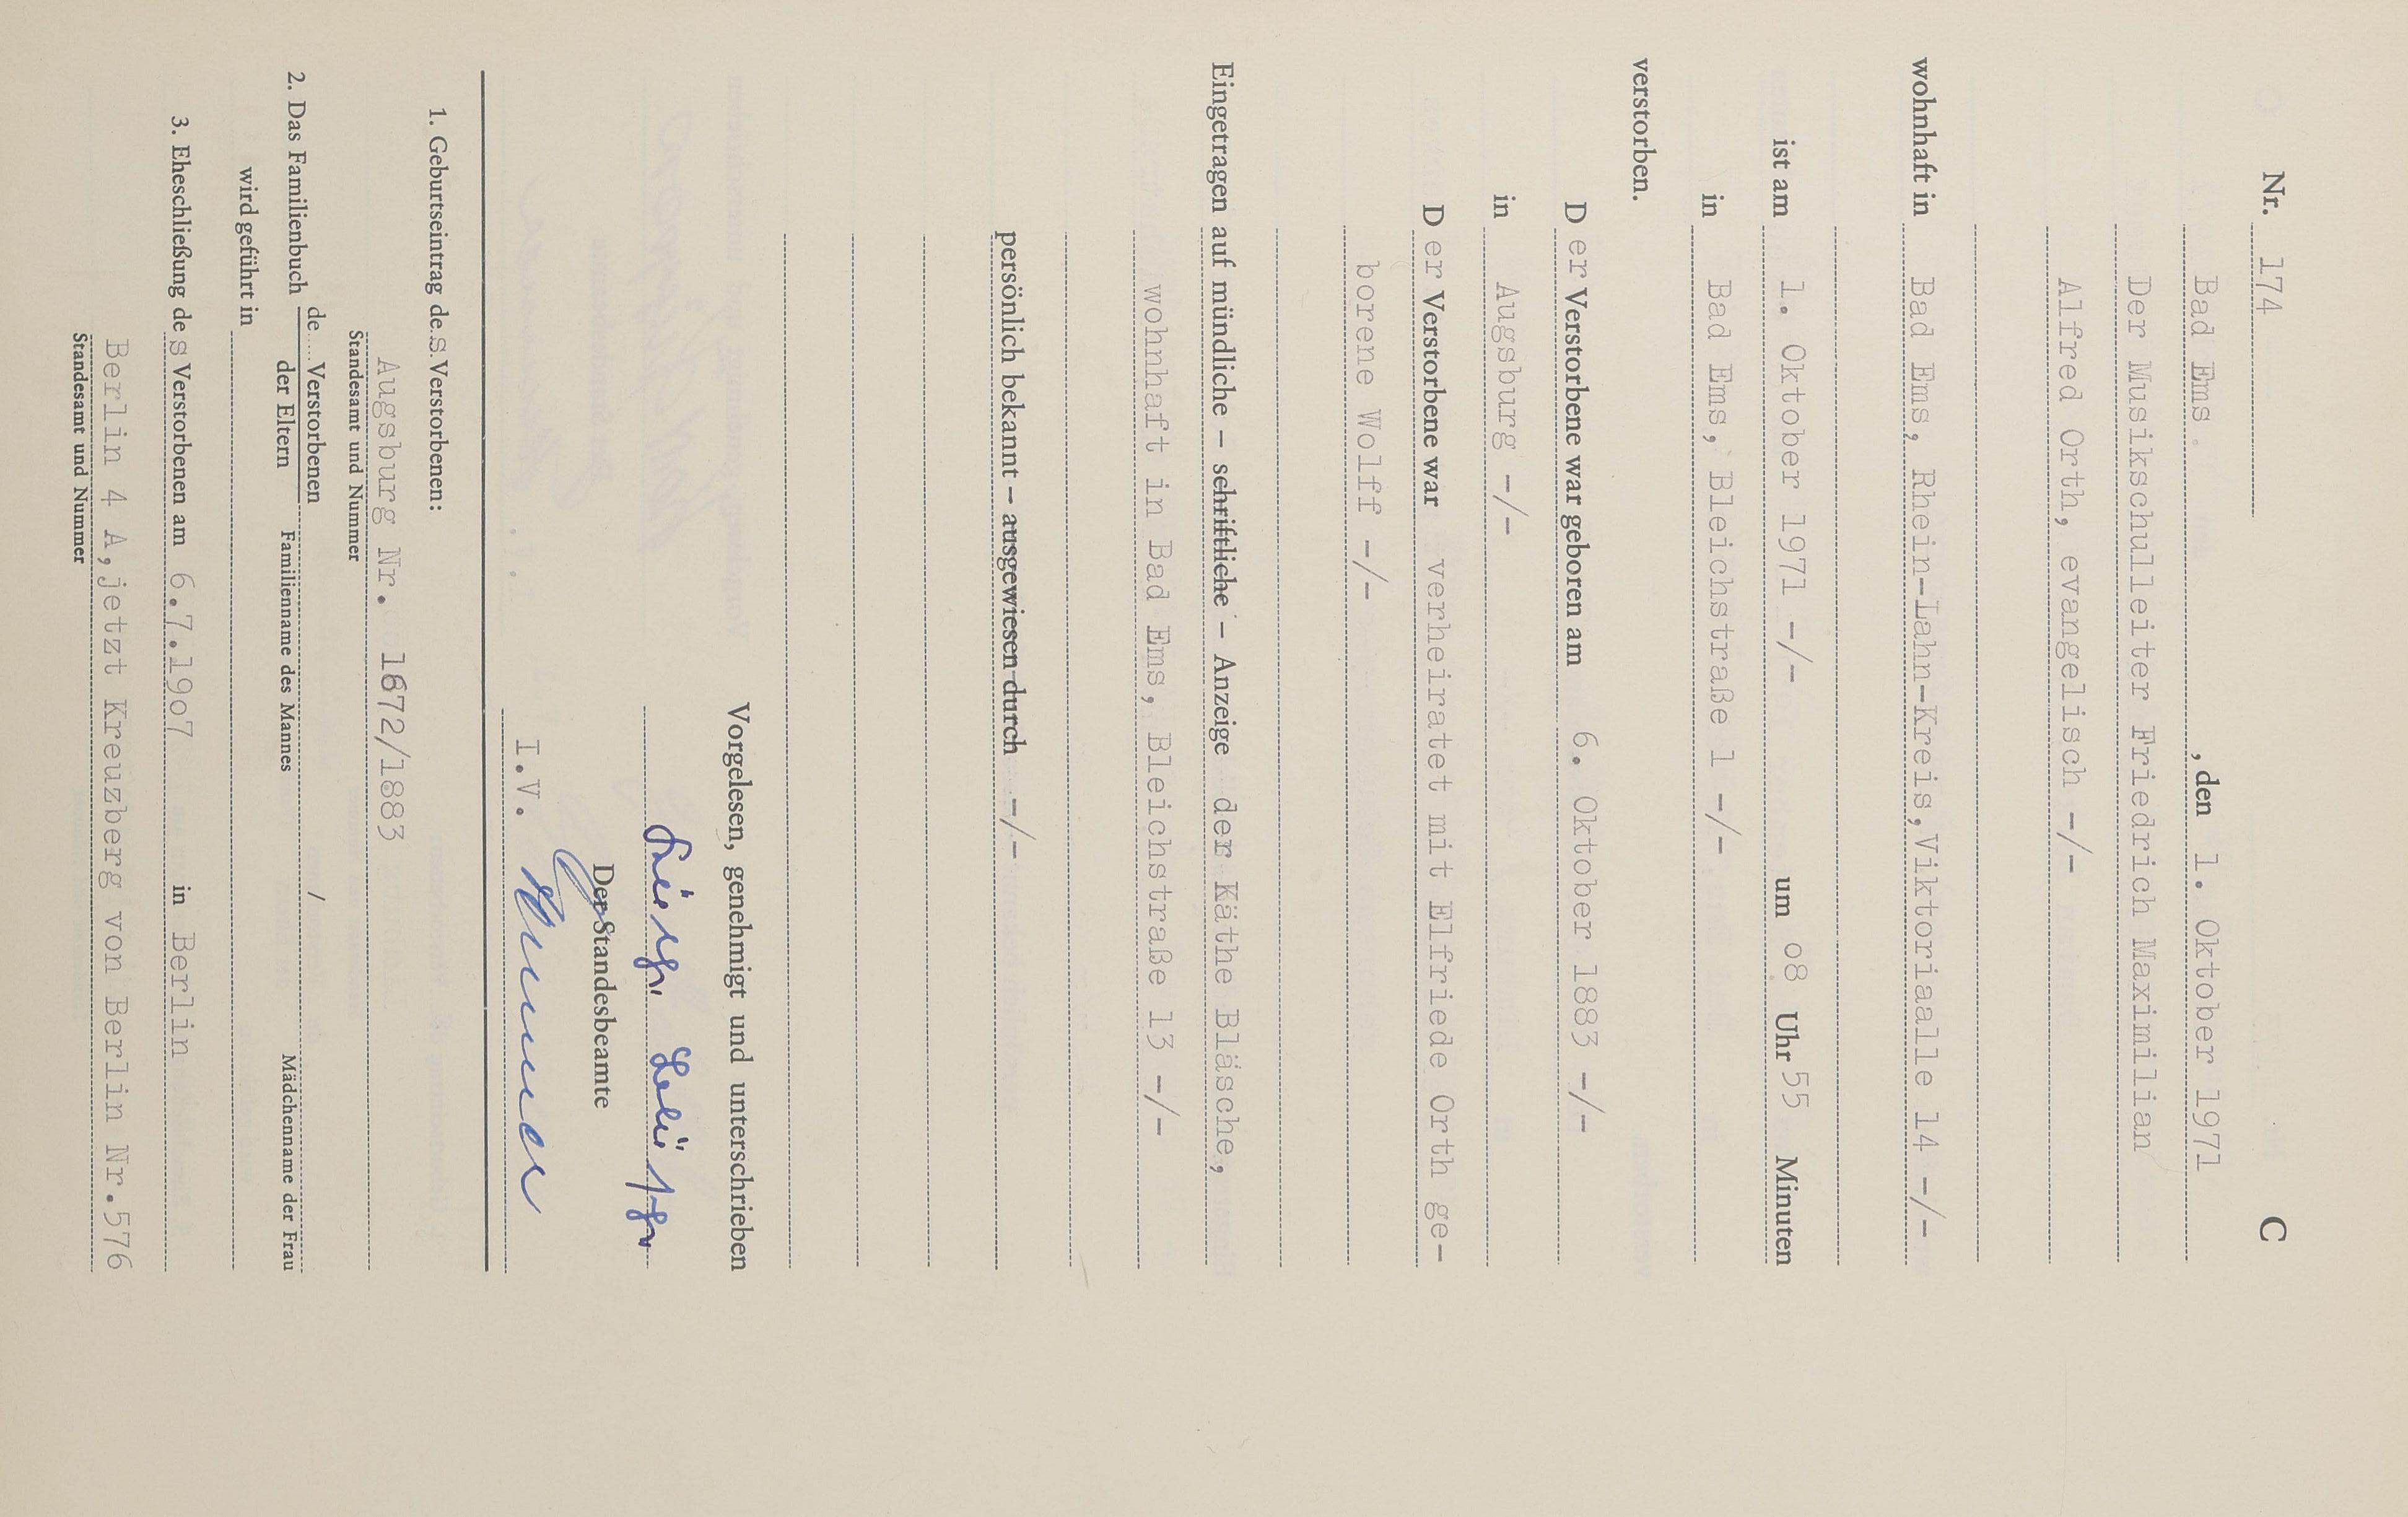 Nr. 174 C
Bad Ems, den 1. Oktober 1971
Der Musikschulleiter Friedrich Maximilian
Alfred Orth, evangelisch -/-
wohnhaft in Bad Ems, Rhein-Lahn-Kreis,Viktoriaalle 14 -/-
ist am 1. Oktober 1971 -/- um o8 Uhr 55 Minuten
in Bad Ems, Bleichstraße 1 -/-
verstorben.
D er Verstorbene war geboren am 6. Oktober 1883 -/-
in Augsburg -/-
D er Verstorbene war verheiratet mit Elfriede Orth ge-
borene Wolff -/-
Eingetragen auf mündliche – schriftliche – Anzeige der Käthe Bläsche,
wohnhaft in Bad Ems, Bleichstraße 13 -/-
persönlich bekannt – ausgewiesen durch -/-
Vorgelesen, genehmigt und unterschrieben
Der Standesbeamte
I.V.
1. Geburtseintrag des Verstorbenen:
Augsburg Nr. 1672/1883
Standesamt und Nummer
2. Das Familienbuch de.... Verstorbenen /
der Eltern Familienname des Mannes Mädchenname der Frau
wird geführt in
3. Eheschließung des Verstorbenen am 6.7.19o7 in Berlin
Berlin 4 A,jetzt Kreuzberg von Berlin Nr.576
Standesamt und Nummer